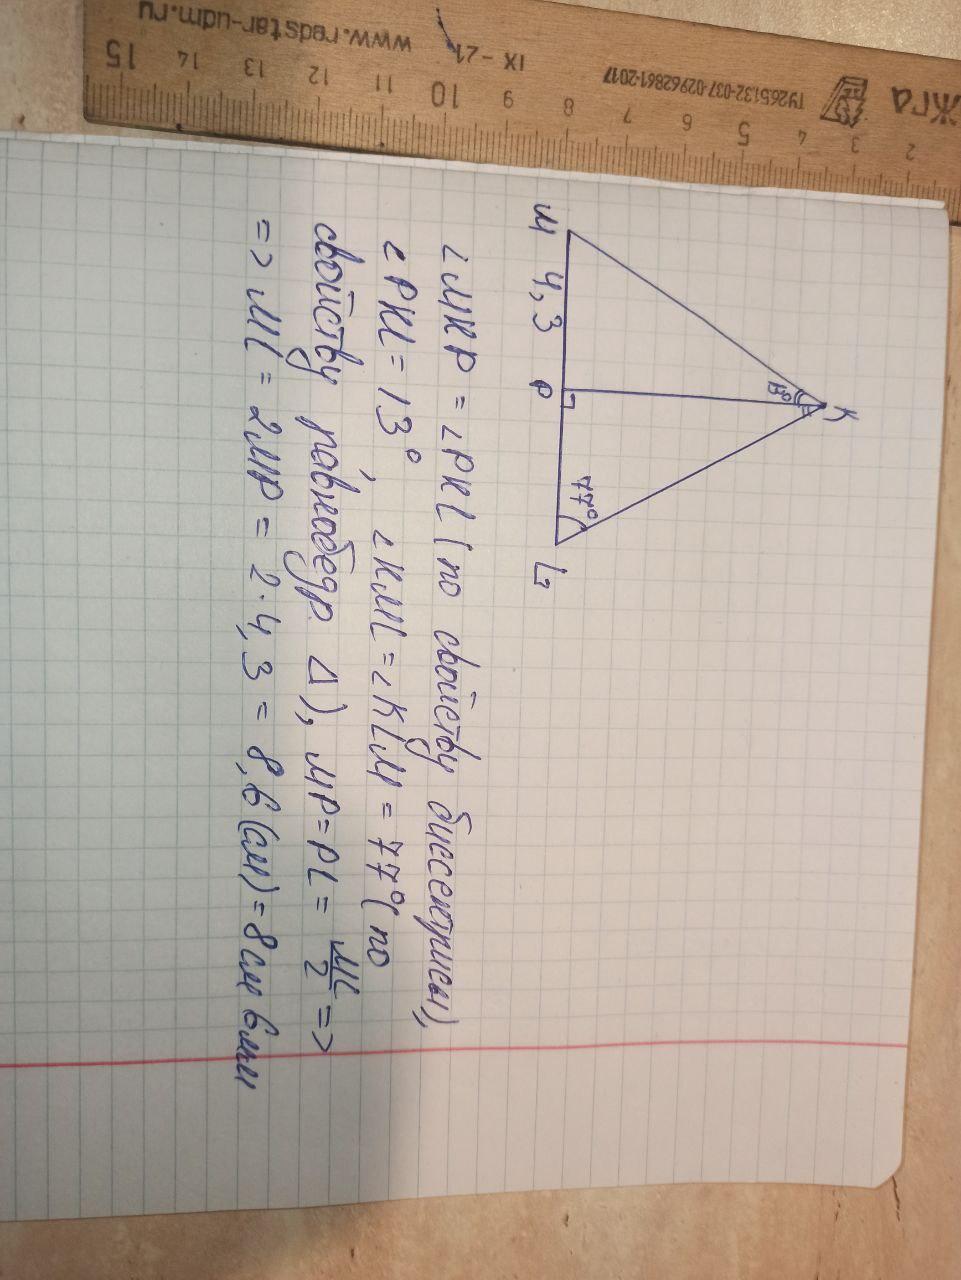 K
13°
77°
M 4,3 P L
∠MKP = ∠PKL (по свойству биссектрисы),
∠PKL = 13°, ∠KML = ∠KLM = 77° (по
свойству равнобедр. Δ), MP = PL = ML/2 =>
=> ML = 2MP = 2·4,3 = 8,6 (см) = 8 см 6 мм
ЖГА
T9265132-037-02962861-2017
IX - 21
www.redstar-udm.ru
2 3 4 5 6 7 8 9 10 11 12 13 14 15